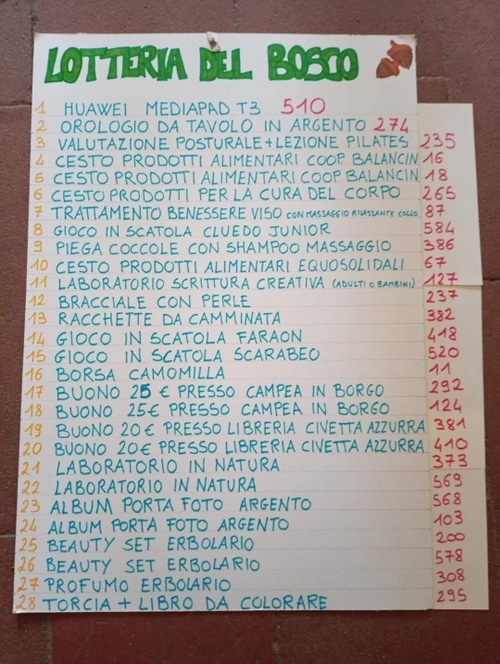 LOTTERIA DEL BOSCO
1 HUAWEI MEDIAPAD T3 510
2 OROLOGIO DA TAVOLO IN ARGENTO 274
3 VALUTAZIONE POSTURALE+LEZIONE PILATES 235
4 CESTO PRODOTTI ALIMENTARI COOP BALANCIN 16
5 CESTO PRODOTTI ALIMENTARI COOP BALANCIN 18
6 CESTO PRODOTTI PER LA CURA DEL CORPO 265
7 TRATTAMENTO BENESSERE VISO CON MASSAGGIO RILASSANTE COLLO 87
8 GIOCO IN SCATOLA CLUEDO JUNIOR 584
9 PIEGA COCCOLE CON SHAMPOO MASSAGGIO 386
10 CESTO PRODOTTI ALIMENTARI EQUOSOLIDALI 67
11 LABORATORIO SCRITTURA CREATIVA (ADULTI O BAMBINI) 127
12 BRACCIALE CON PERLE 237
13 RACCHETTE DA CAMMINATA 382
14 GIOCO IN SCATOLA FARAON 418
15 GIOCO IN SCATOLA SCARABEO 520
16 BORSA CAMOMILLA 11
17 BUONO 25 € PRESSO CAMPEA IN BORGO 292
18 BUONO 25€ PRESSO CAMPEA IN BORGO 124
19 BUONO 20€ PRESSO LIBRERIA CIVETTA AZZURRA 381
20 BUONO 20€ PRESSO LIBRERIA CIVETTA AZZURRA 410
21 LABORATORIO IN NATURA 373
22 LABORATORIO IN NATURA 569
23 ALBUM PORTA FOTO ARGENTO 568
24 ALBUM PORTA FOTO ARGENTO 103
25 BEAUTY SET ERBOLARIO 200
26 BEAUTY SET ERBOLARIO 578
27 PROFUMO ERBOLARIO 308
28 TORCIA + LIBRO DA COLORARE 295